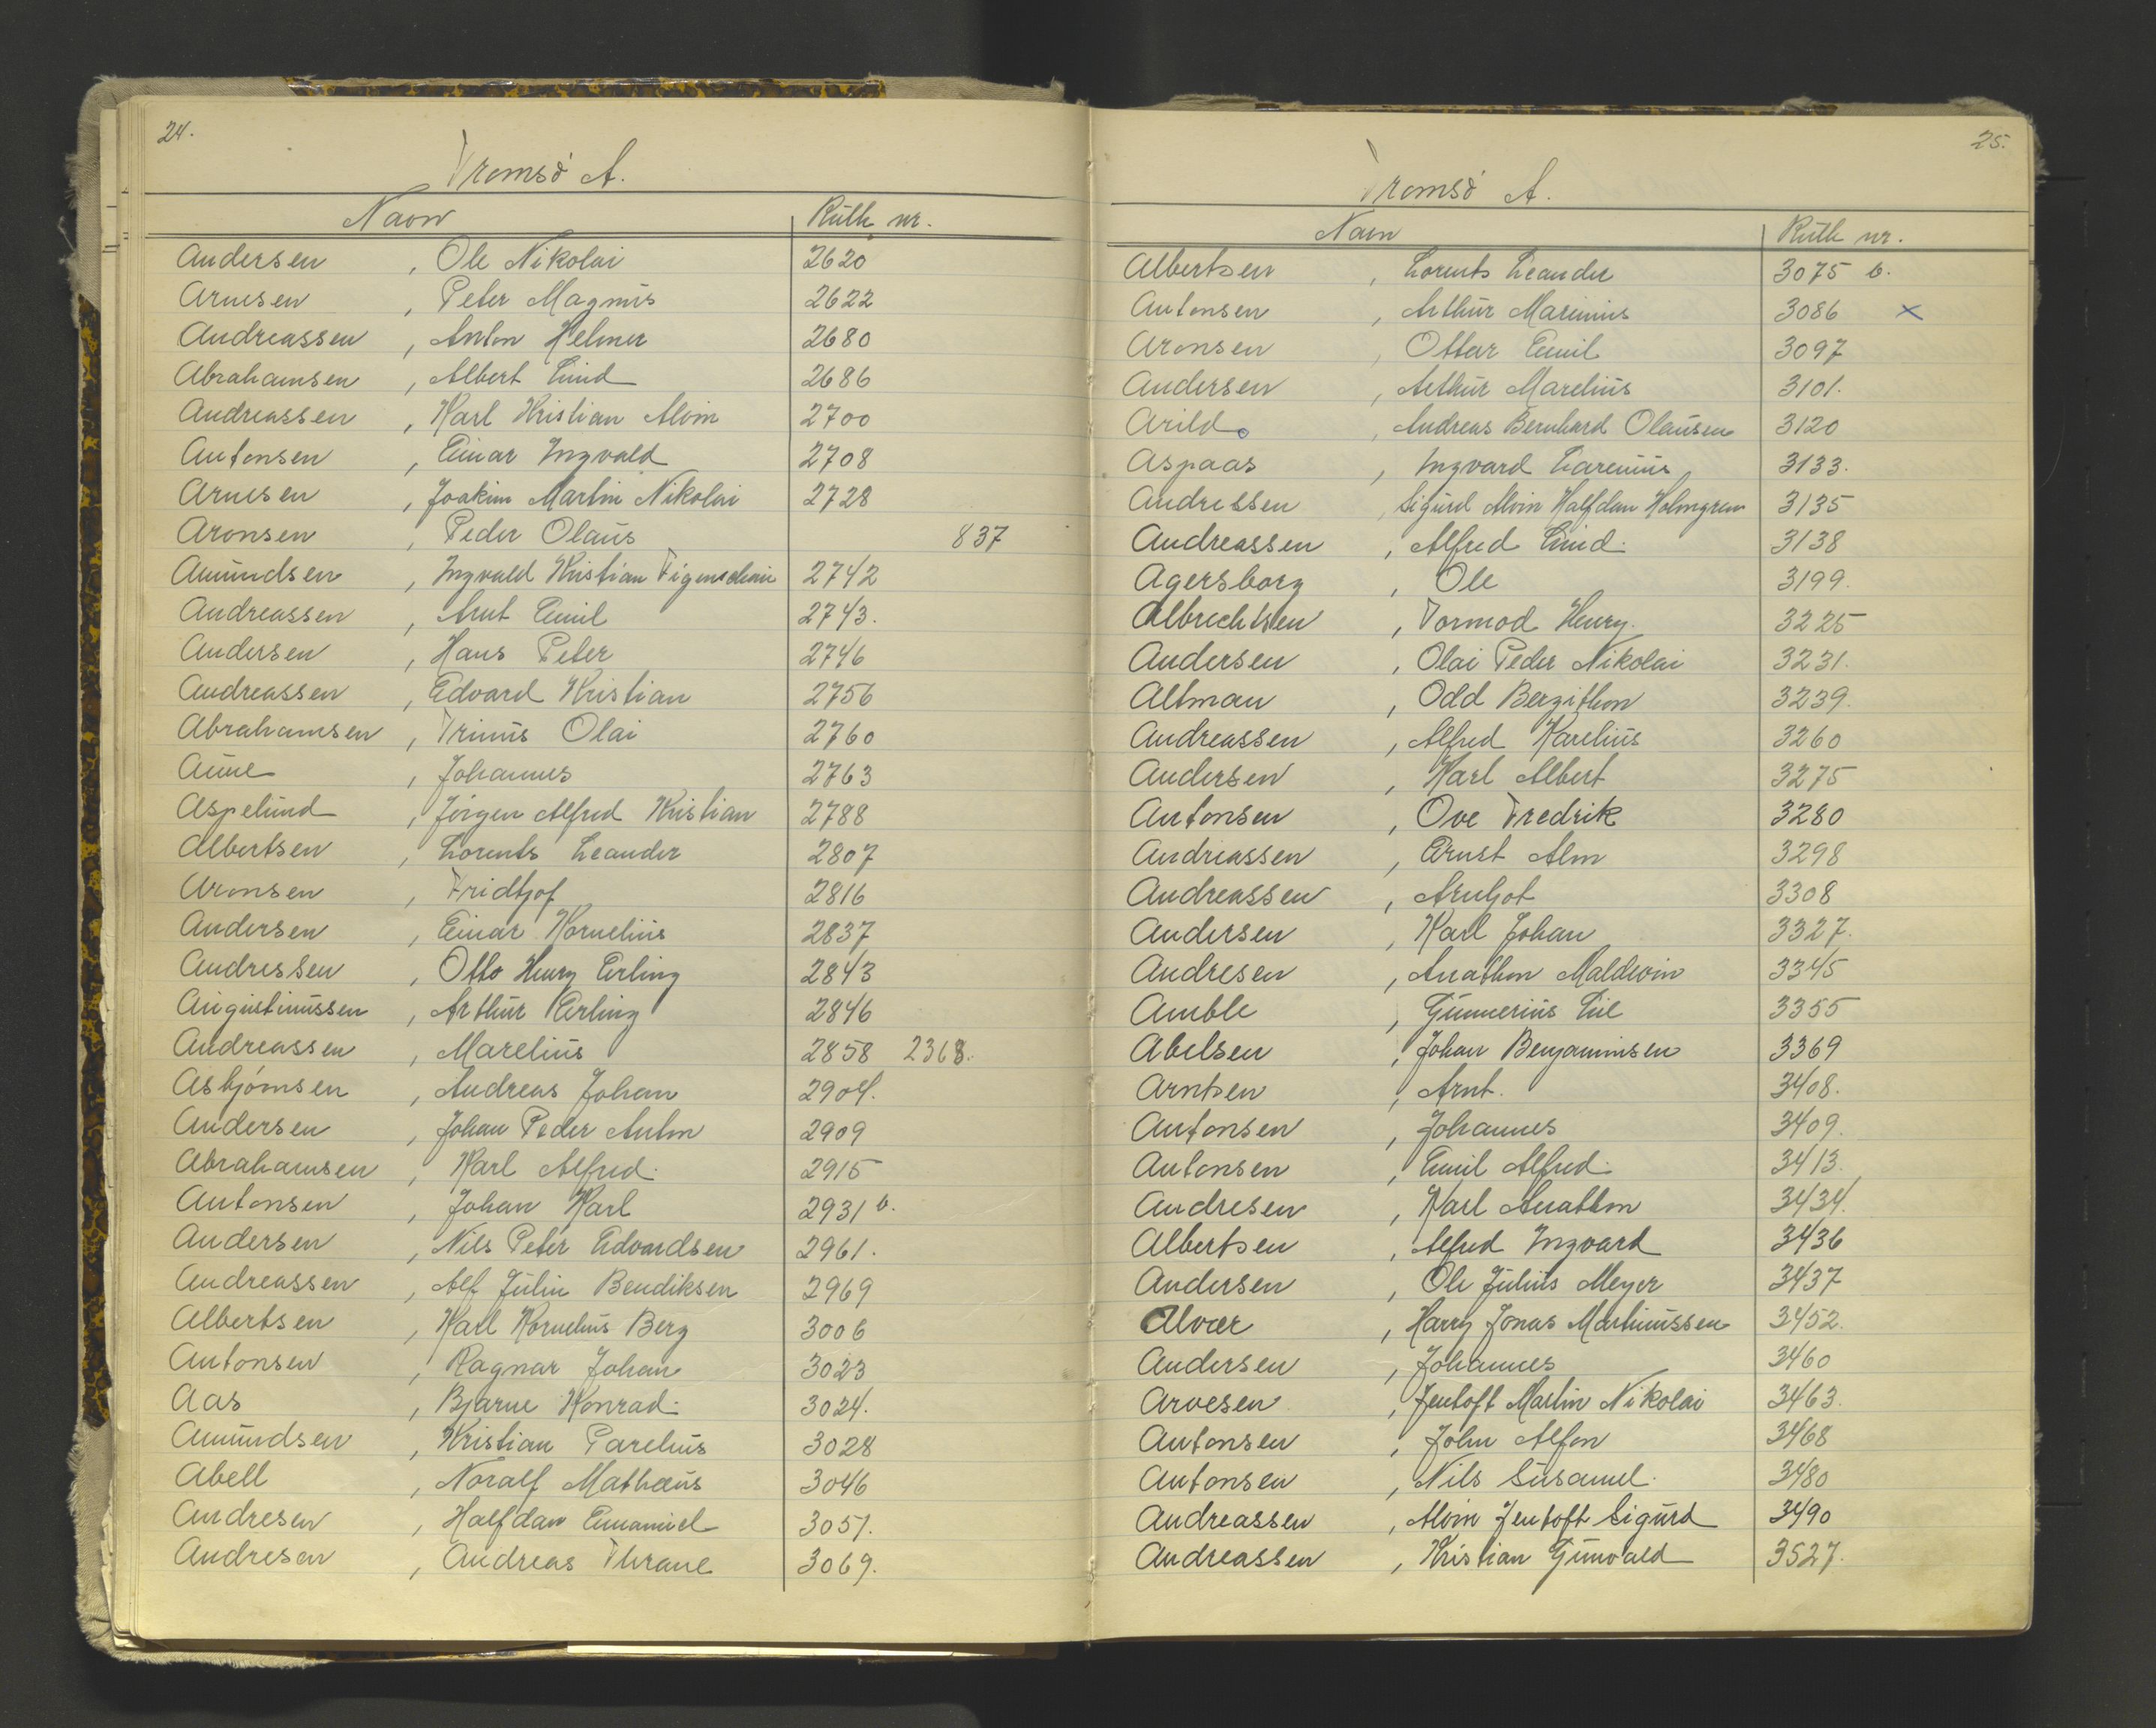 24.
Tromsø A.
Navn Rulle nr.
Andersen , Ole Nikolai 2620
Arnesen , Peter Magnus 2622
Andreassen , Anton Helmer 2680
Abrahamsen , Albert Lind 2686
Andreassen , Karl Kristian Alvin 2700
Antonsen , Einar Ingvald 2708
Arnesen , Joakim Martin Nikolai 2728
Aronsen , Peder Olaus 837
Amundsen , Ingvald Kristian Figenschau 2742
Andreassen , Arnt Emil 2743.
Andersen , Hans Peter 2746
Andreassen , Edvard Kristian 2756
Abrahamsen , Trinus Olai 2760
Aune , Johannes 2763
Aspelund , Jørgen Alfred Kristian 2788
Albertsen , Lorents Leander 2807
Aronsen , Fridtjof 2816
Andersen , Einar Kornelius 2837
Andressen , Otto Henry Erling 2843
Augustinussen , Arthur Erling 2846
Andreassen , Marelius 2858 2368.
Asbjørnsen , Andreas Johan 2904.
Andersen , Johan Peder Anton 2909
Abrahamsen , Karl Alfred. 2915
Antonsen , Johan Karl 2931 b.
Andersen , Nils Peter Edvardsen 2961.
Andreassen , Alf Julin Bendiksen 2969
Albertsen , Karl Kornelius Berg 3006
Antonsen , Ragnar Johan 3023
Aas , Bjarne Konrad. 3024.
Amundsen , Kristian Parelius 3028
Abell , Noralf Mathæus 3046
Andresen , Halfdan Emanuel 3051.
Andresen , Andreas Thrane 3069.
25.
Tromsø A.
Navn Rulle nr.
Albertsen , Lorents Leander 3075 b.
Antonsen , Arthur Marinius 3086 x
Aronsen , Ottar Emil 3097
Andersen , Arthur Marelius 3101.
Arild , Andreas Bernhard Olausen 3120
Aspaas , Ingvard Karenius 3133.
Andressen , Sigurd Alvin Halfdan Holmgren 3135
Andreassen , Alfred Lind. 3138
Agersborg , Ole 3199.
Albrechtsen , Tormod Henry. 3225
Andersen , Olai Peder Nikolai 3231.
Altman , Odd Bergithon 3239.
Andreassen , Alfred Karelius 3260
Andersen , Karl Albert 3275
Antonsen , Ove Fredrik 3280
Andreassen , Ernst Alm 3298
Andreassen , Arnljot 3308
Andersen , Karl Johan 3327.
Andresen , Anathon Maldwin 3345
Amble , Gunnerius Lie 3355
Abelsen , Johan Benjaminsen 3369
Arntsen , Arnt. 3408.
Antonsen , Johannes 3409.
Antonsen , Emil Alfred. 3413.
Andresen , Karl Anathon 3434.
Albertsen , Alfred Ingvard 3436
Andersen , Ole Julius Meyer 3437
Alvær , Harry Jonas Martinussen 3452.
Andersen , Johannes 3460
Arvesen , Jentoft Martin Nikolai 3463.
Antonsen , John Alfon 3468
Antonsen , Nils Susamel. 3480
Andreassen , Alvin Jentoft Sigurd 3490
Andreassen , Kristian Gunvald 3527.